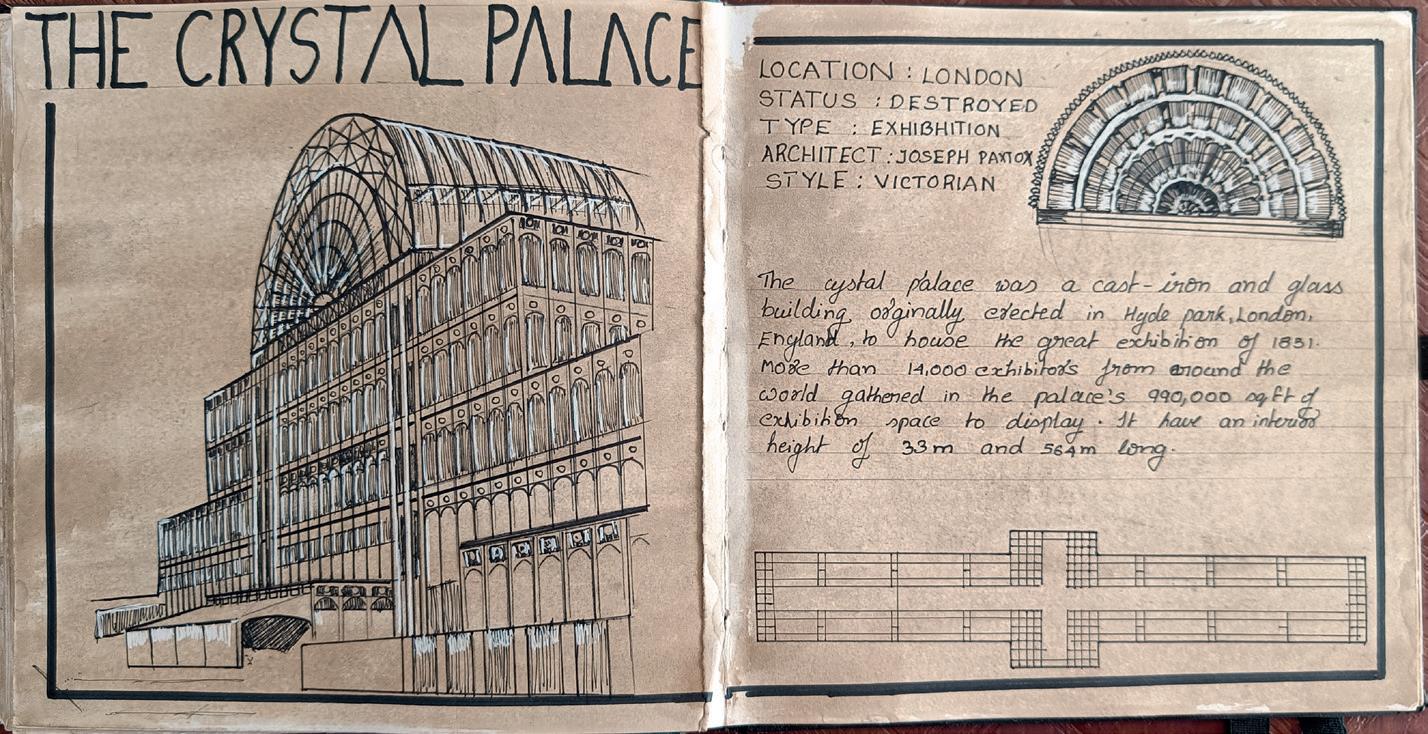 THE CRYSTAL PALACE
LOCATION : LONDON
STATUS : DESTROYED
TYPE : EXHIBHITION
ARCHITECT : JOSEPH PAXTOX
STYLE : VICTORIAN
The cystal palace was a cast-iron and glass
building orginally erected in Hyde park, London,
England, to house the great exhibition of 1851.
More than 14,000 exhibitors from around the
world gathered in the palace's 990,000 sq ft of
exhibition space to display. It have an interior
height of 33m and 564m long.